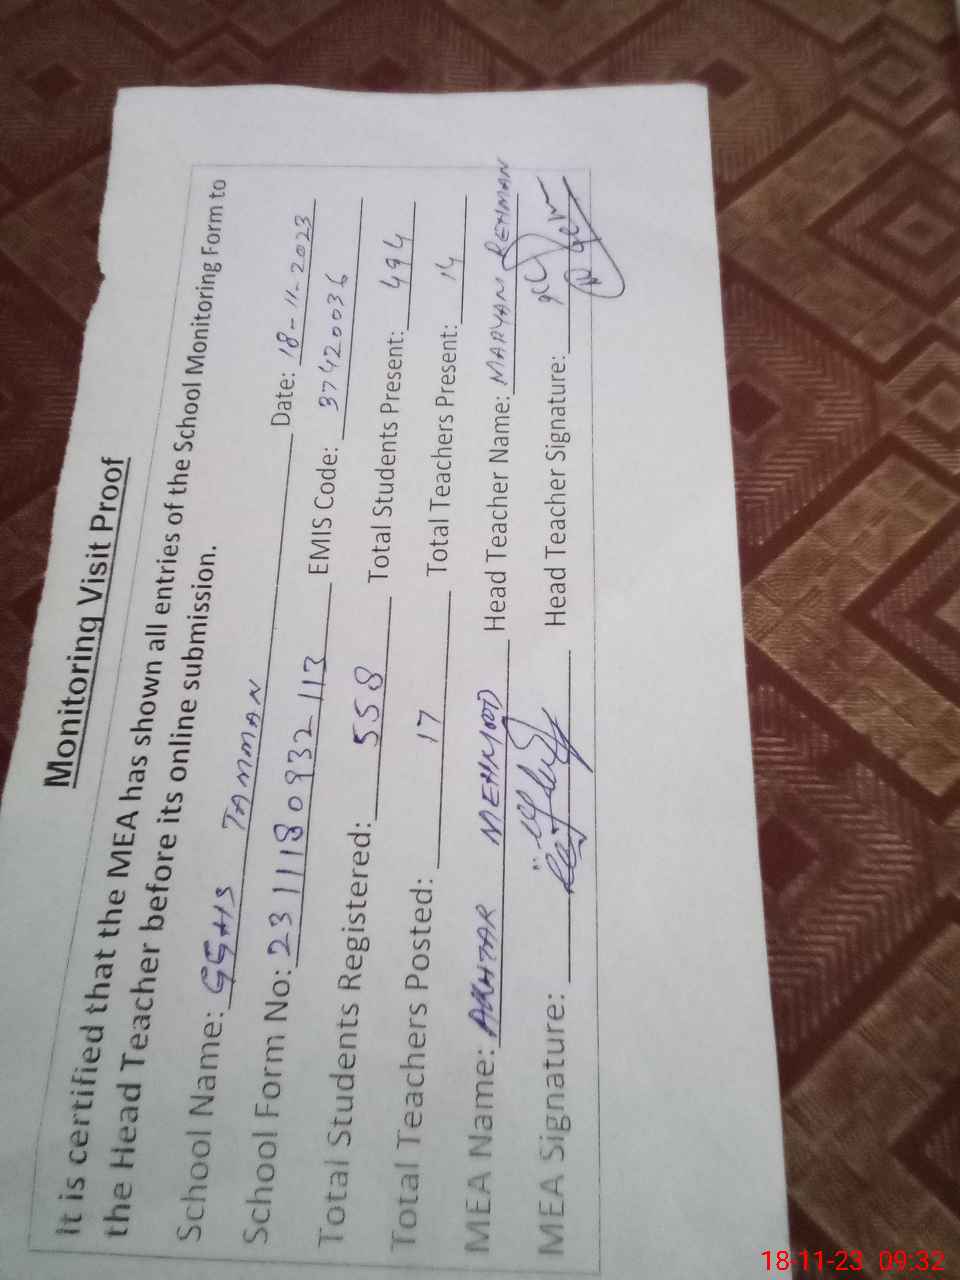 Monitoring Visit Proof
It is certified that the MEA has shown all entries of the School Monitoring Form to
the Head Teacher before its online submission.
School Name: GGHS TAMMAN Date: 18-11-2023
School Form No: 2311180932113 EMIS Code: 37420036
Total Students Registered: 558 Total Students Present: 494
Total Teachers Posted: 17 Total Teachers Present: 14
MEA Name: AKHTAR MEHMOOD Head Teacher Name: MARYAN REHMAN
MEA Signature: Head Teacher Signature:
18-11-23 09:32